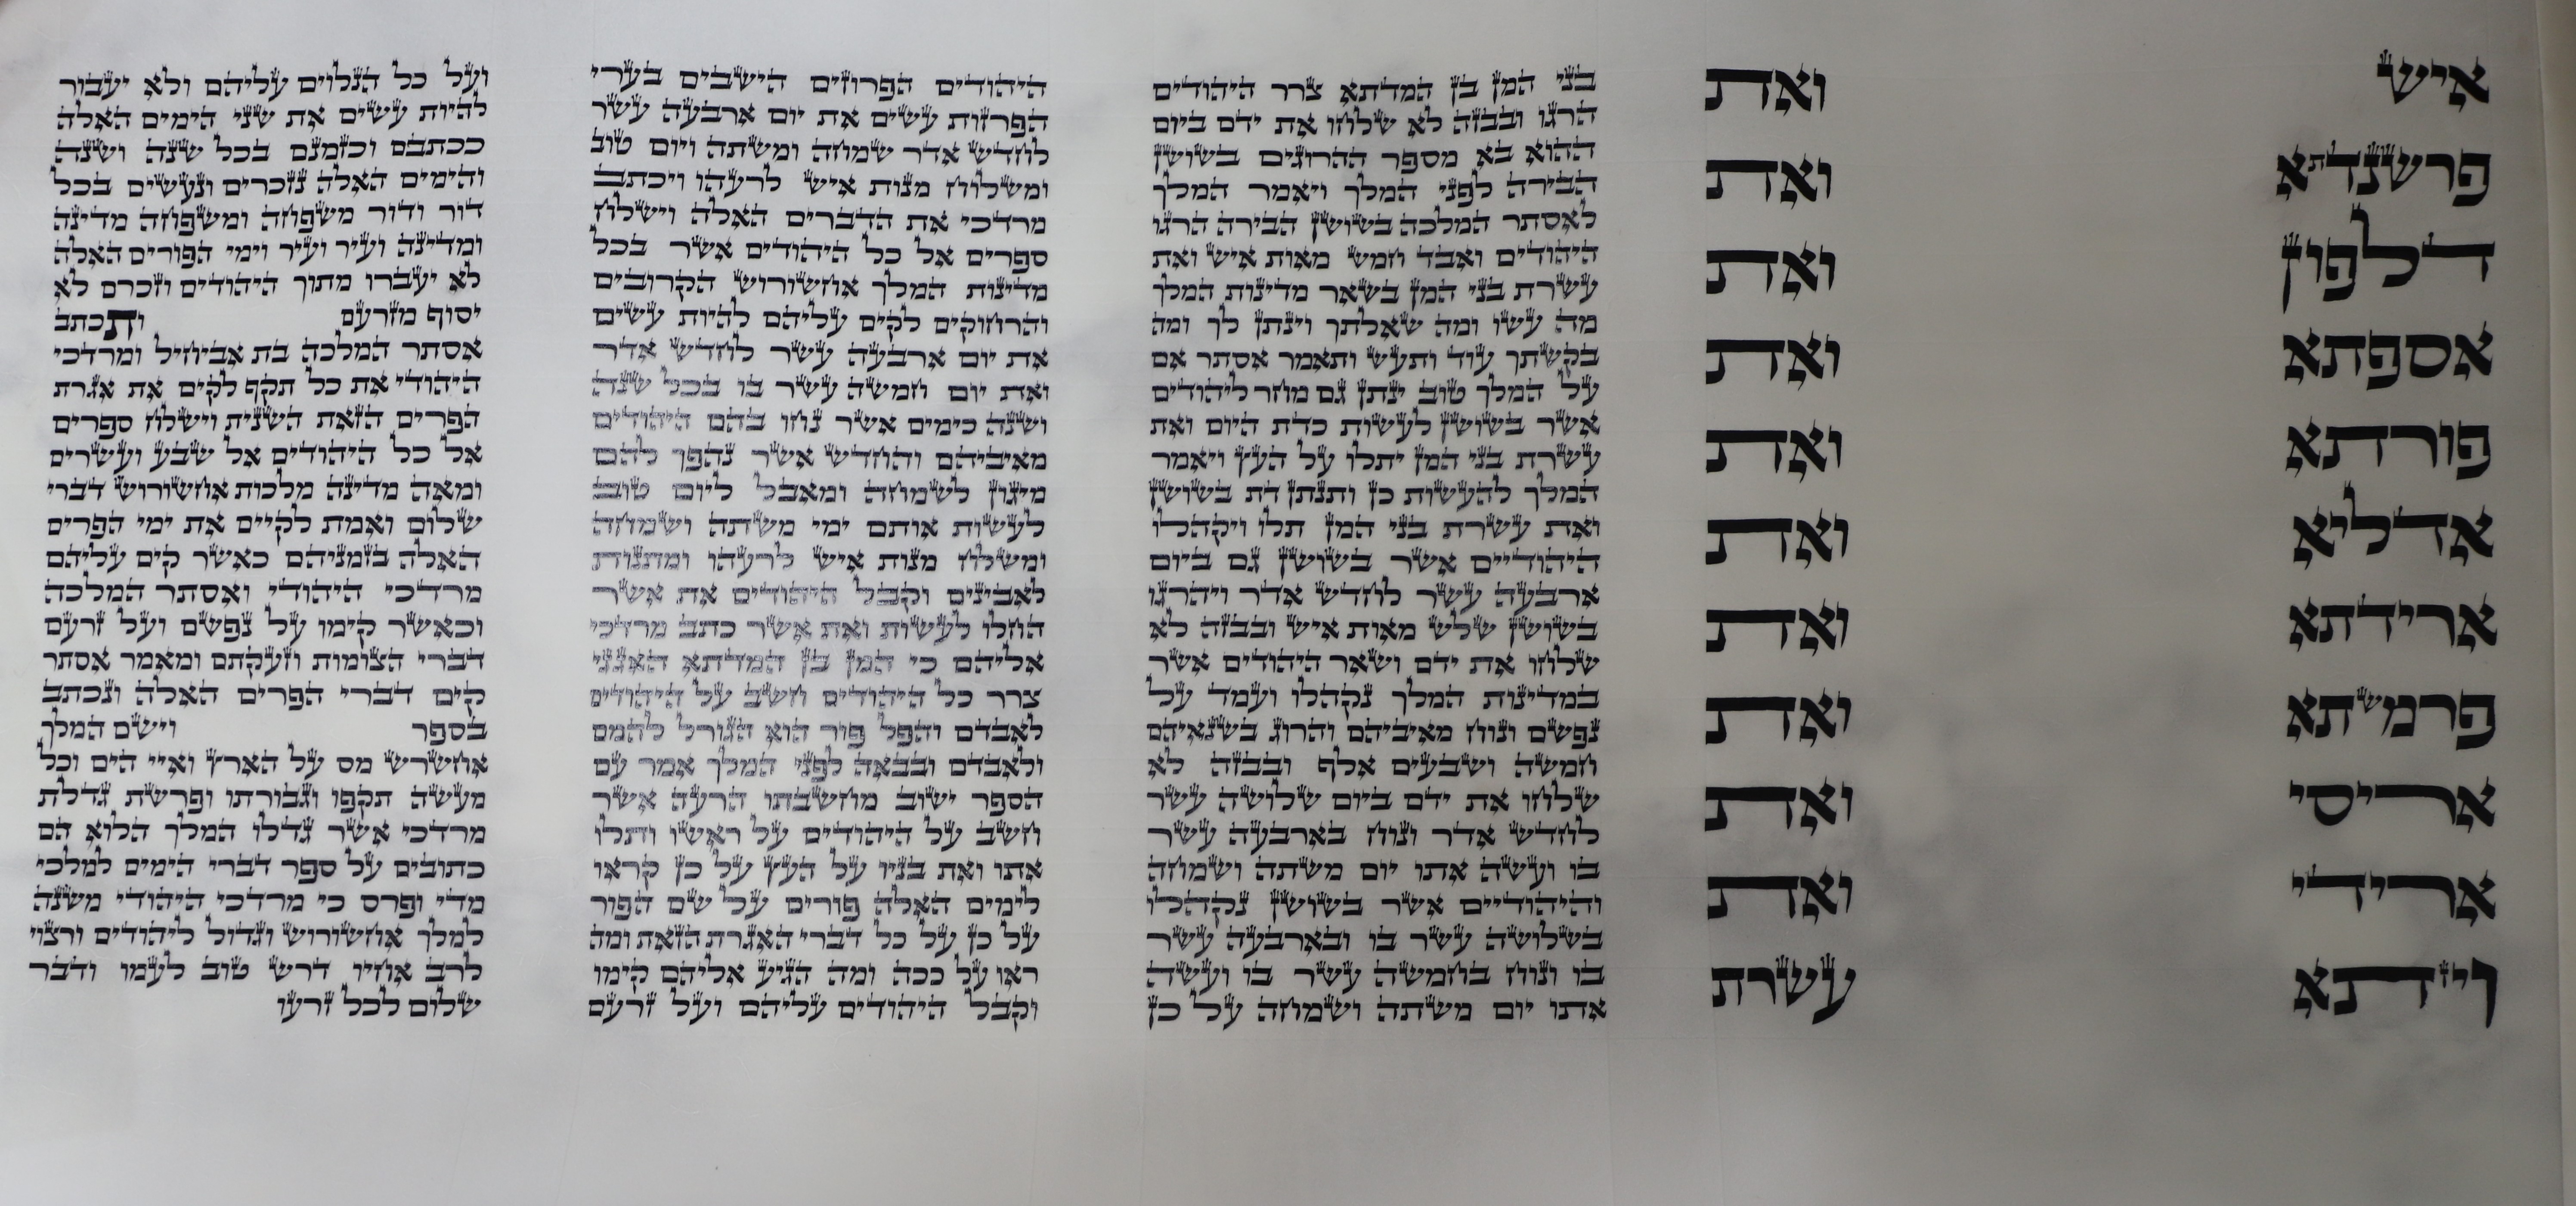 איש ואת
פרשנדתא ואת
דלפון ואת
אספתא ואת
פורתא ואת
אדליא ואת
ארידתא ואת
פרמשתא ואת
אריסי ואת
ארידי ואת
ויזתא עשרת
בני המן בן המדתא צרר היהודים
הרגו ובבזה לא שלחו את ידם ביום
ההוא בא מספר ההרוגים בשושן
הבירה לפני המלך ויאמר המלך
לאסתר המלכה בשושן הבירה הרגו
היהודים ואבד חמש מאות איש ואת
עשרת בני המן בשאר מדינות המלך
מה עשו ומה שאלתך וינתן לך ומה
בקשתך עוד ותעש ותאמר אסתר אם
על המלך טוב ינתן גם מחר ליהודים
אשר בשושן לעשות כדת היום ואת
עשרת בני המן יתלו על העץ ויאמר
המלך להעשות כן ותנתן דת בשושן
ואת עשרת בני המן תלו ויקהלו
היהודיים אשר בשושן גם ביום
ארבעה עשר לחדש אדר ויהרגו
בשושן שלש מאות איש ובבזה לא
שלחו את ידם ושאר היהודים אשר
במדינות המלך נקהלו ועמד על
נפשם ונוח מאיביהם והרוג בשנאיהם
חמשה ושבעים אלף ובבזה לא
שלחו את ידם ביום שלושה עשר
לחדש אדר ונוח בארבעה עשר
בו ועשה אתו יום משתה ושמחה
והיהודיים אשר בשושן נקהלו
בשלושה עשר בו ובארבעה עשר
בו ונוח בחמשה עשר בו ועשה
אתו יום משתה ושמחה על כן
היהודים הפרוזים הישבים בערי
הפרזות עשים את יום ארבעה עשר
לחדש אדר שמחה ומשתה ויום טוב
ומשלוח מנות איש לרעהו ויכתב
מרדכי את הדברים האלה וישלח
ספרים אל כל היהודים אשר בכל
מדינות המלך אחשורוש הקרובים
והרחוקים לקים עליהם להיות עשים
את יום ארבעה עשר לחדש אדר
ואת יום חמשה עשר בו בכל שנה
ושנה כימים אשר נחו בהם היהודים
מאיביהם והחדש אשר נהפך להם
מיגון לשמחה ומאבל ליום טוב
לעשות אותם ימי משתה ושמחה
ומשלח מנות איש לרעהו ומתנות
לאבינים וקבל היהודים את אשר
החלו לעשות ואת אשר כתב מרדכי
אליהם כי המן בן המדתא האגגי
צרר כל היהודים חשב על היהודים
לאבדם והפל פור הוא הגורל להמם
ולאבדם ובבאה לפני המלך אמר עם
הספר ישוב מחשבתו הרעה אשר
חשב על היהודים על ראשו ותלו
אתו ואת בניו על העץ על כן קראו
לימים האלה פורים על שם הפור
על כן על כל דברי האגרת הזאת ומה
ראו על ככה ומה הגיע אליהם קימו
וקבל היהודים עליהם ועל זרעם
ועל כל הנלוים עליהם ולא יעבור
להיות עשים את שני הימים האלה
ככתבם וכזמנם בכל שנה ושנה
והימים האלה נזכרים ונעשים בכל
דור ודור משפחה ומשפחה מדינה
ומדינה ועיר ועיר וימי הפורים האלה
לא יעברו מתוך היהודים וזכרם לא
יסוף מזרעם ותכתב
אסתר המלכה בת אביחיל ומרדכי
היהודי את כל תקף לקים את אגרת
הפרים הזאת השנית וישלח ספרים
אל כל היהודים אל שבע ועשרים
ומאה מדינה מלכות אחשורוש דברי
שלום ואמת לקיים את ימי הפרים
האלה בזמניהם כאשר קים עליהם
מרדכי היהודי ואסתר המלכה
וכאשר קימו על נפשם ועל זרעם
דברי הצומות וזעקתם ומאמר אסתר
קים דברי הפרים האלה ונכתב
בספר וישם המלך
אחשרש מס על הארץ ואיי הים וכל
מעשה תקפו וגבורתו ופרשת גדלת
מרדכי אשר גדלו המלך הלוא הם
כתובים על ספר דברי הימים למלכי
מדי ופרס כי מרדכי היהודי משנה
למלך אחשורוש וגדול ליהודים ורצוי
לרב אחיו דרש טוב לעמו ודבר
שלום לכל זרעו